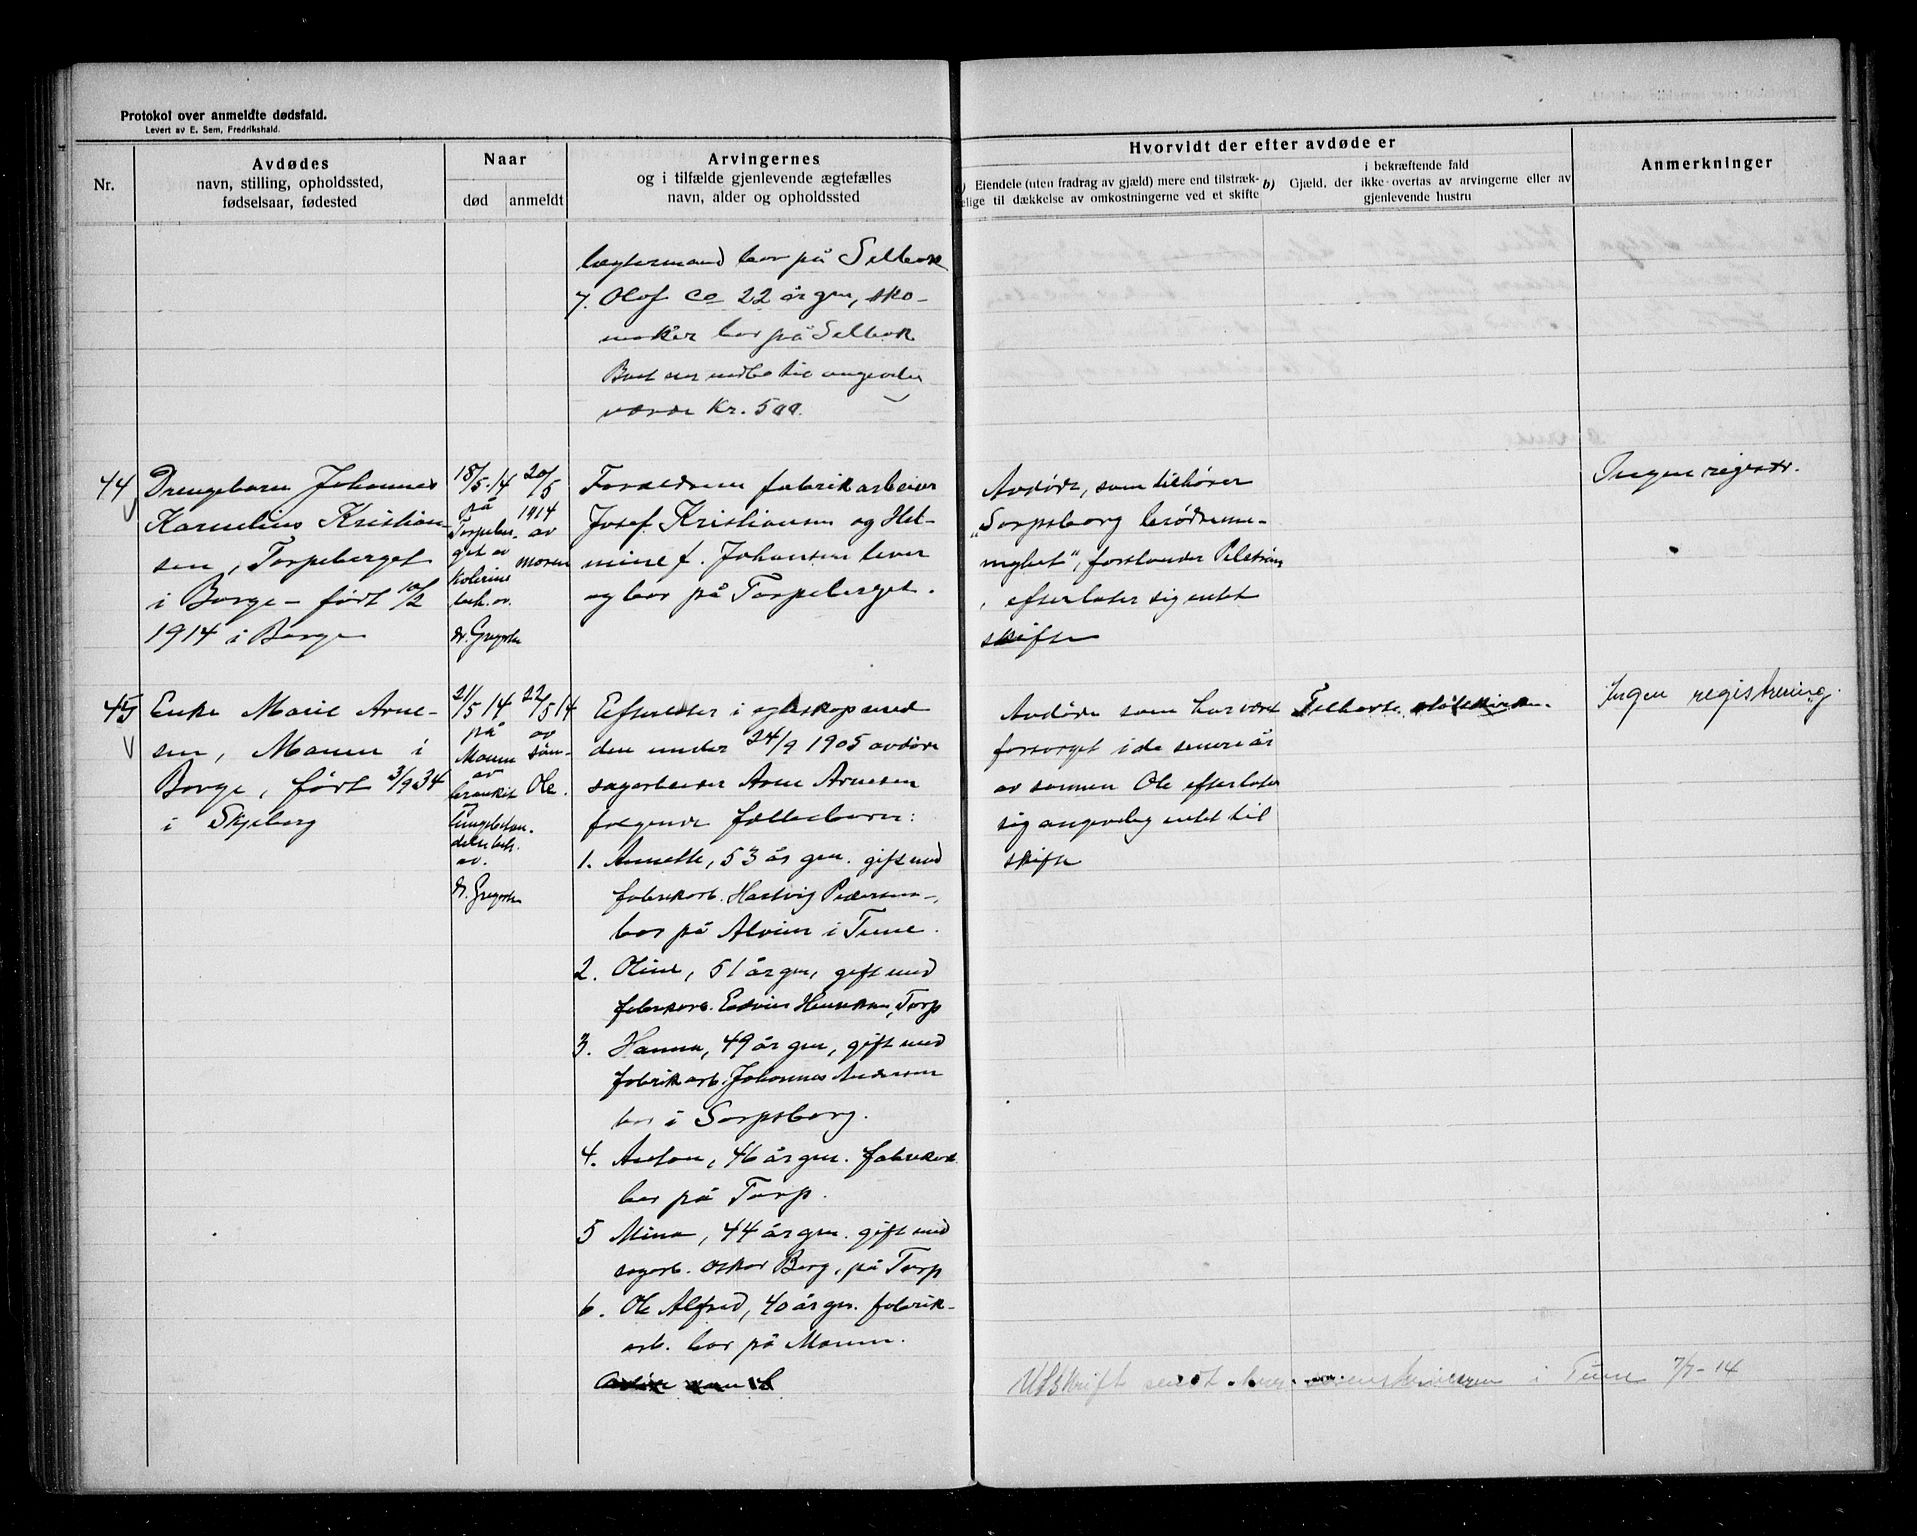 Protokol over anmeldte dødsfald.
Levert av E. Sem, Fredrikshald.
Nr.
Avdødes
navn, stilling, opholdssted,
fødselsaar, fødested
Naar
død
anmeldt
Arvingernes
og i tilfælde gjenlevende ægtefælles
navn, alder og opholdssted
Hvorvidt der efter avdøde er
Eiendele (uten fradrag av gjæld) mere end tilstræk-
elige til dækkelse av omkostningerne ved et skifte
b) Gjæld, der i bekræftende fald
ikke overtas av arvingerne eller av
gjenlevende hustru
Anmerkninger
bor på Selbak
7. Olof ca 22 år gm, sko-
maker bor på Selbak
værde Kr. 500.
44
Drengebarn Johannes
Kornelius Kristian-
sen, Torpeberget
i Borge - født 10/2
1914 i Borge
18/5-14
på
Torpeber-
get av
kolerine
beh. av
dr. Gregersen
20/5
1914
av
moren
Forældrene fabrikarbeider
Josef Kristiansen og Hel-
mine f. Johansen lever
og bor på Torpeberget.
Avdøde, som tilhører
"Sarpsborg brødreme-
nighet", forstander Pilström
, efterlater sig intet
skifte
Ingen registr.
45
Enke Marie Arne-
sen, Moum i
Borge, født 3/9 34
i Skjeberg
21/5 14
på
Moum
av
bronkit
lungebetæn-
delse beh.
av.
dr. Gregersen
22/5 14
av
søn-
Ole.
Efterlater i egteskap med
den under 24/9 1905 avdøde
sagarbeider Arne Arnesen
følgende fællesbarn:
1. Annette, 53 år gm. gift med
fabrikarb. Hartvig Pedersen-,
bor på Alvim i Tune.
2. Oline, 51 år gm, gift med
fabrikarb. Edvin Henriksen, Torp
3. Hanna, 49 år gm, gift med
fabrikarb. Johannes Andersen
bor i Sarpsborg.
4. Anton, 46 år gm. fabrikarb
bor på Torp.
5 Mina, 44 år gm. gift med
sagarb. Oskar Berg, på Torp
6. Ole Alfred, 40 år gm. fabrik-
arb. bor på Moum.
Avdøde som har været
forsørget i de senere år
av sønnen Ole efterlater
sig angivelig intet til
skifte
Tilhørte statskirken.
Ingen registrering.
Utskrift sendt sorenskriveren i Tune 7/7-14